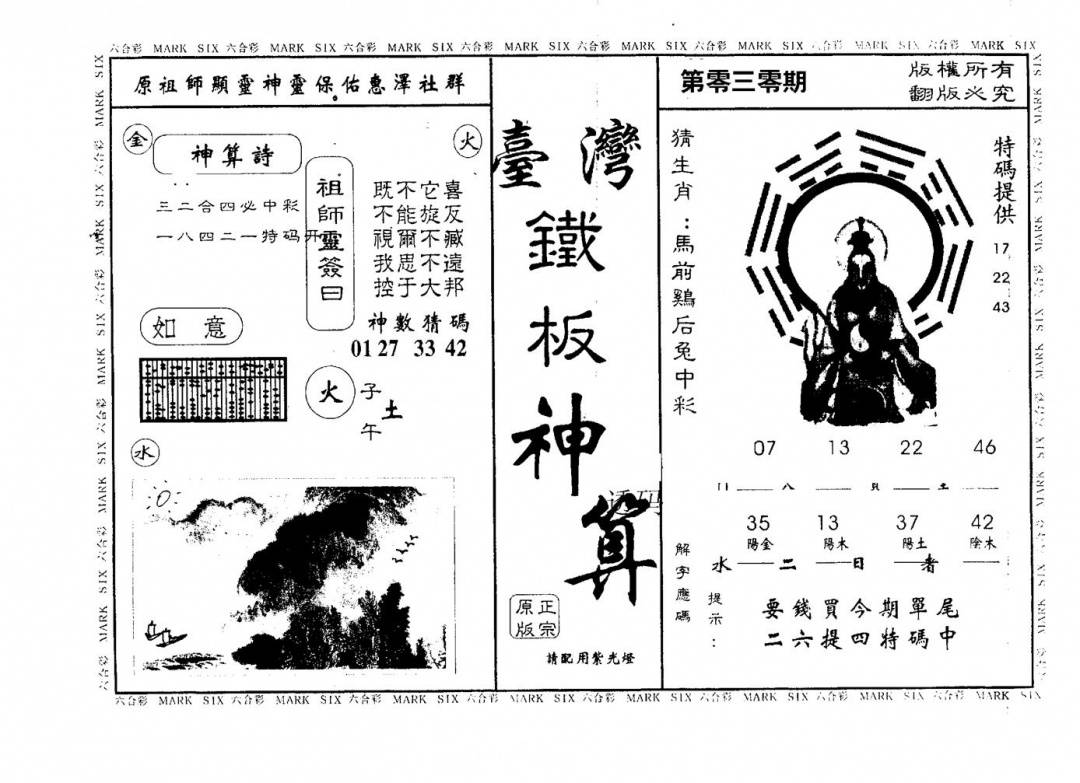 六合彩 MARK SIX 六合彩 MARK SIX 六合彩 MARK SIX 六合彩 MARK SIX 六合彩 MARK SIX 六合彩 MARK SIX 六合彩 MARK SIX 六合彩 MARK SIX
原祖師顯靈神靈保佑惠澤社群
金
火
神算詩
三二合四必中彩
一八四二一特码开
祖師靈簽曰
既不它喜
不能旋反
視爾不臧
我思不遠
控于大邦
神數猜碼
01 27 33 42
如意
火
子
土
午
水
臺灣
鐵
板
神
算
原正
版宗
請配用紫光燈
第零三零期
版權所有
翻版必究
猜生肖：馬前鷄后兔中彩
特碼提供
17
22
43
07 13 22 46
35 13 37 42
陽金 陽木 陽土 陰木
解字應碼
水 二 日 者
提示：
要錢買今期單尾
二六提四特碼中
六合彩 MARK SIX 六合彩 MARK SIX 六合彩 MARK SIX 六合彩 MARK SIX 六合彩 MARK SIX 六合彩 MARK SIX 六合彩 MARK SIX 六合彩 MARK SIX